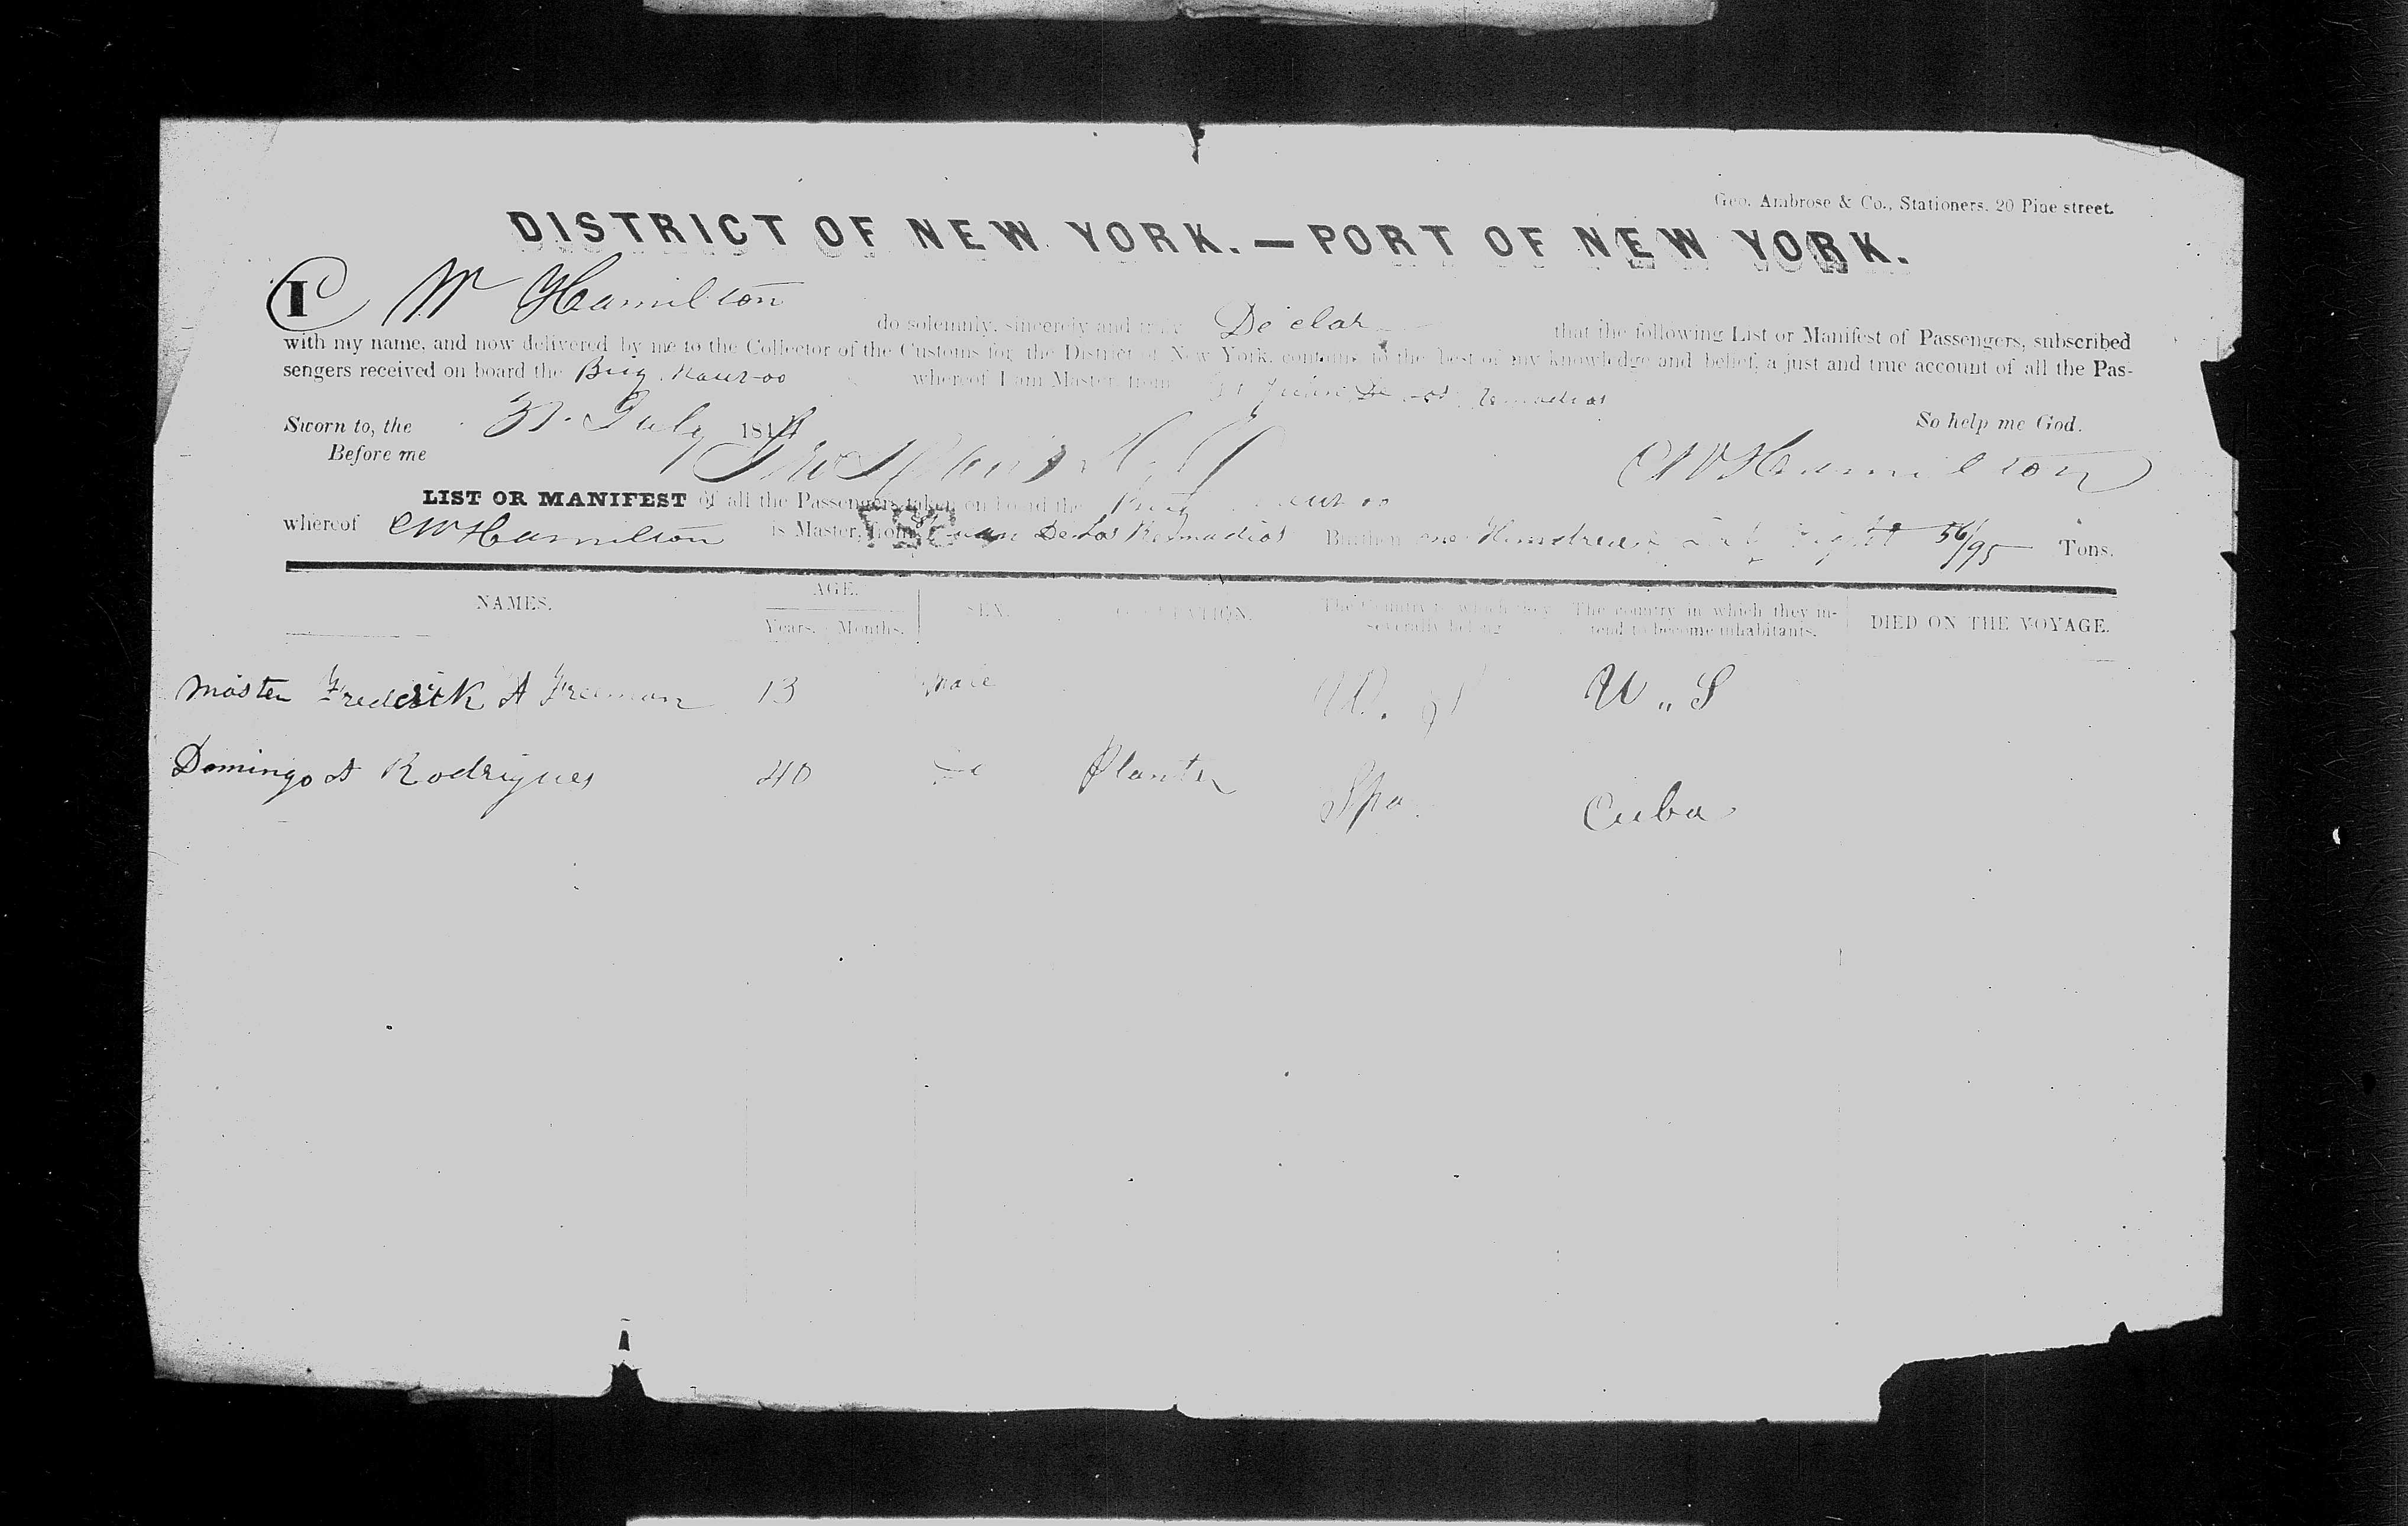 Geo. Ambrose & Co., Stationers, 20 Pine street.
DISTRICT OF NEW YORK.—PORT OF NEW YORK.
I C W Hamilton do solemnly, sincerely and truly Declar that the following List or Manifest of Passengers, subscribed
with my name, and now delivered by me to the Collector of the Customs for the District of New York, contains, to the best of my knowledge and belief, a just and true account of all the Pas-
sengers received on board the Brig whereof I am Master, from St Juan De Los Remadios
So help me God.
Sworn to, the 31 July 184
Before me
C W Hamilton
LIST OR MANIFEST of all the Passengers taken on board the Brig
whereof C W Hamilton is Master, from St Juan De Los Remadios Burthen one Hundred Eight 56/95 Tons.
NAMES. AGE. SEX. OCCUPATION. The Country to which they severally belong. The country in which they in-tend to become inhabitants. DIED ON THE VOYAGE.
Years. Months.
Master Frederick A Freeman 13 Male U. S U " S
Domingo A Rodrigues 40 Do Planter Spa. Cuba